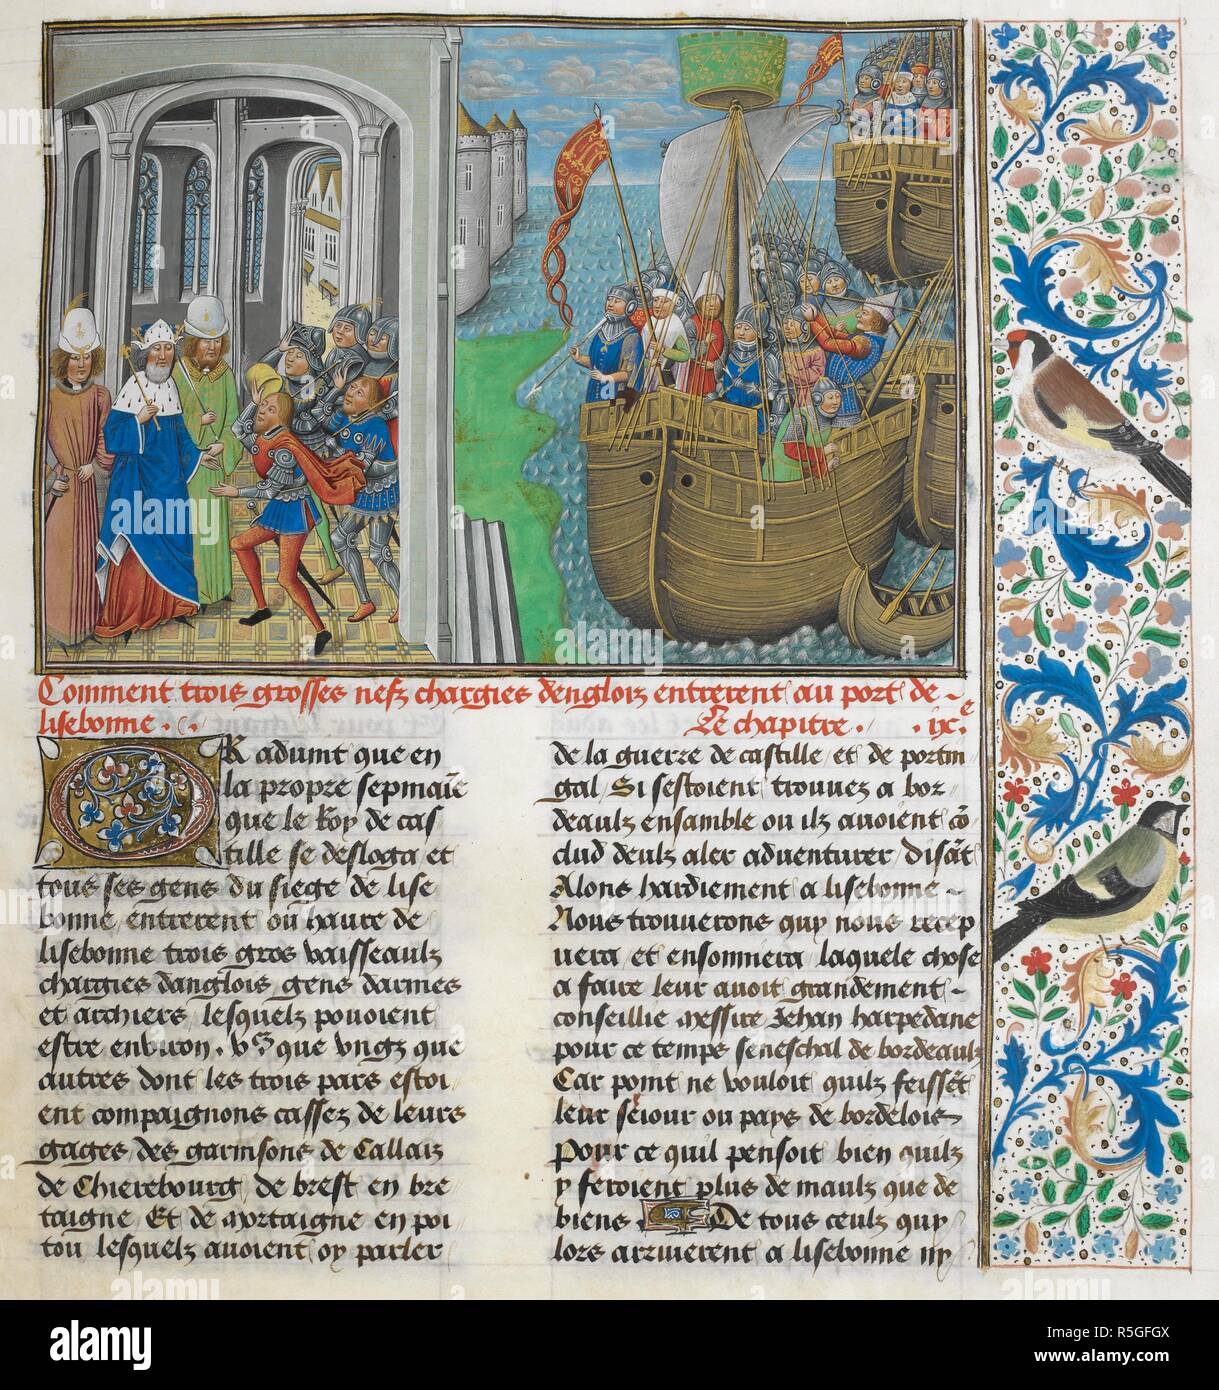 Comment trois grosses nefz chargies denglois entrerent au port de
lisebonne. Le chapitre. ixe.
OR aduint que en
la propre sepmaīe
que le Roy de cas
tille se desloga et
tous ses gens du siege de lise
bonne, entrerent ou haure de
lisebonne trois gros vaisseaulz
chargies danglois, gens darmes
et archiers, lesquelz pouoient
estre enuiron. vc que vngz que
autres dont les trois pars estoi-
ent compaignons cassez de leurs
gages, des garnisons de Callaiz
de Chierebourg, de brest en bre
taigne, Et de mortaigne en poi
tou lesquelz auoient oy parler
de la guerre de castille et de portin
gal, Si sestoient trouuez a bor-
deaulz ensamble ou ilz auoient cō
clud deulz aler aduenturer, disāt
Alons hardiement a lisebonne
Nous trouuerons quy nous recep
uera, et ensonniera, laquele chose
a faire leur auoit grandement
conseillie messire Jehan harpedane
pour ce temps seneschal de bordeaulz
Car point ne vouloit quilz feissēt
leur seiour ou pays de bordelois
Pour ce quil pensoit bien quilz
y feroient plus de maulz que de
biens De tous ceulz quy
lors arriuerent a lisebonne ny
alamy
alamy
Image ID: R5GFGX
www.alamy.com